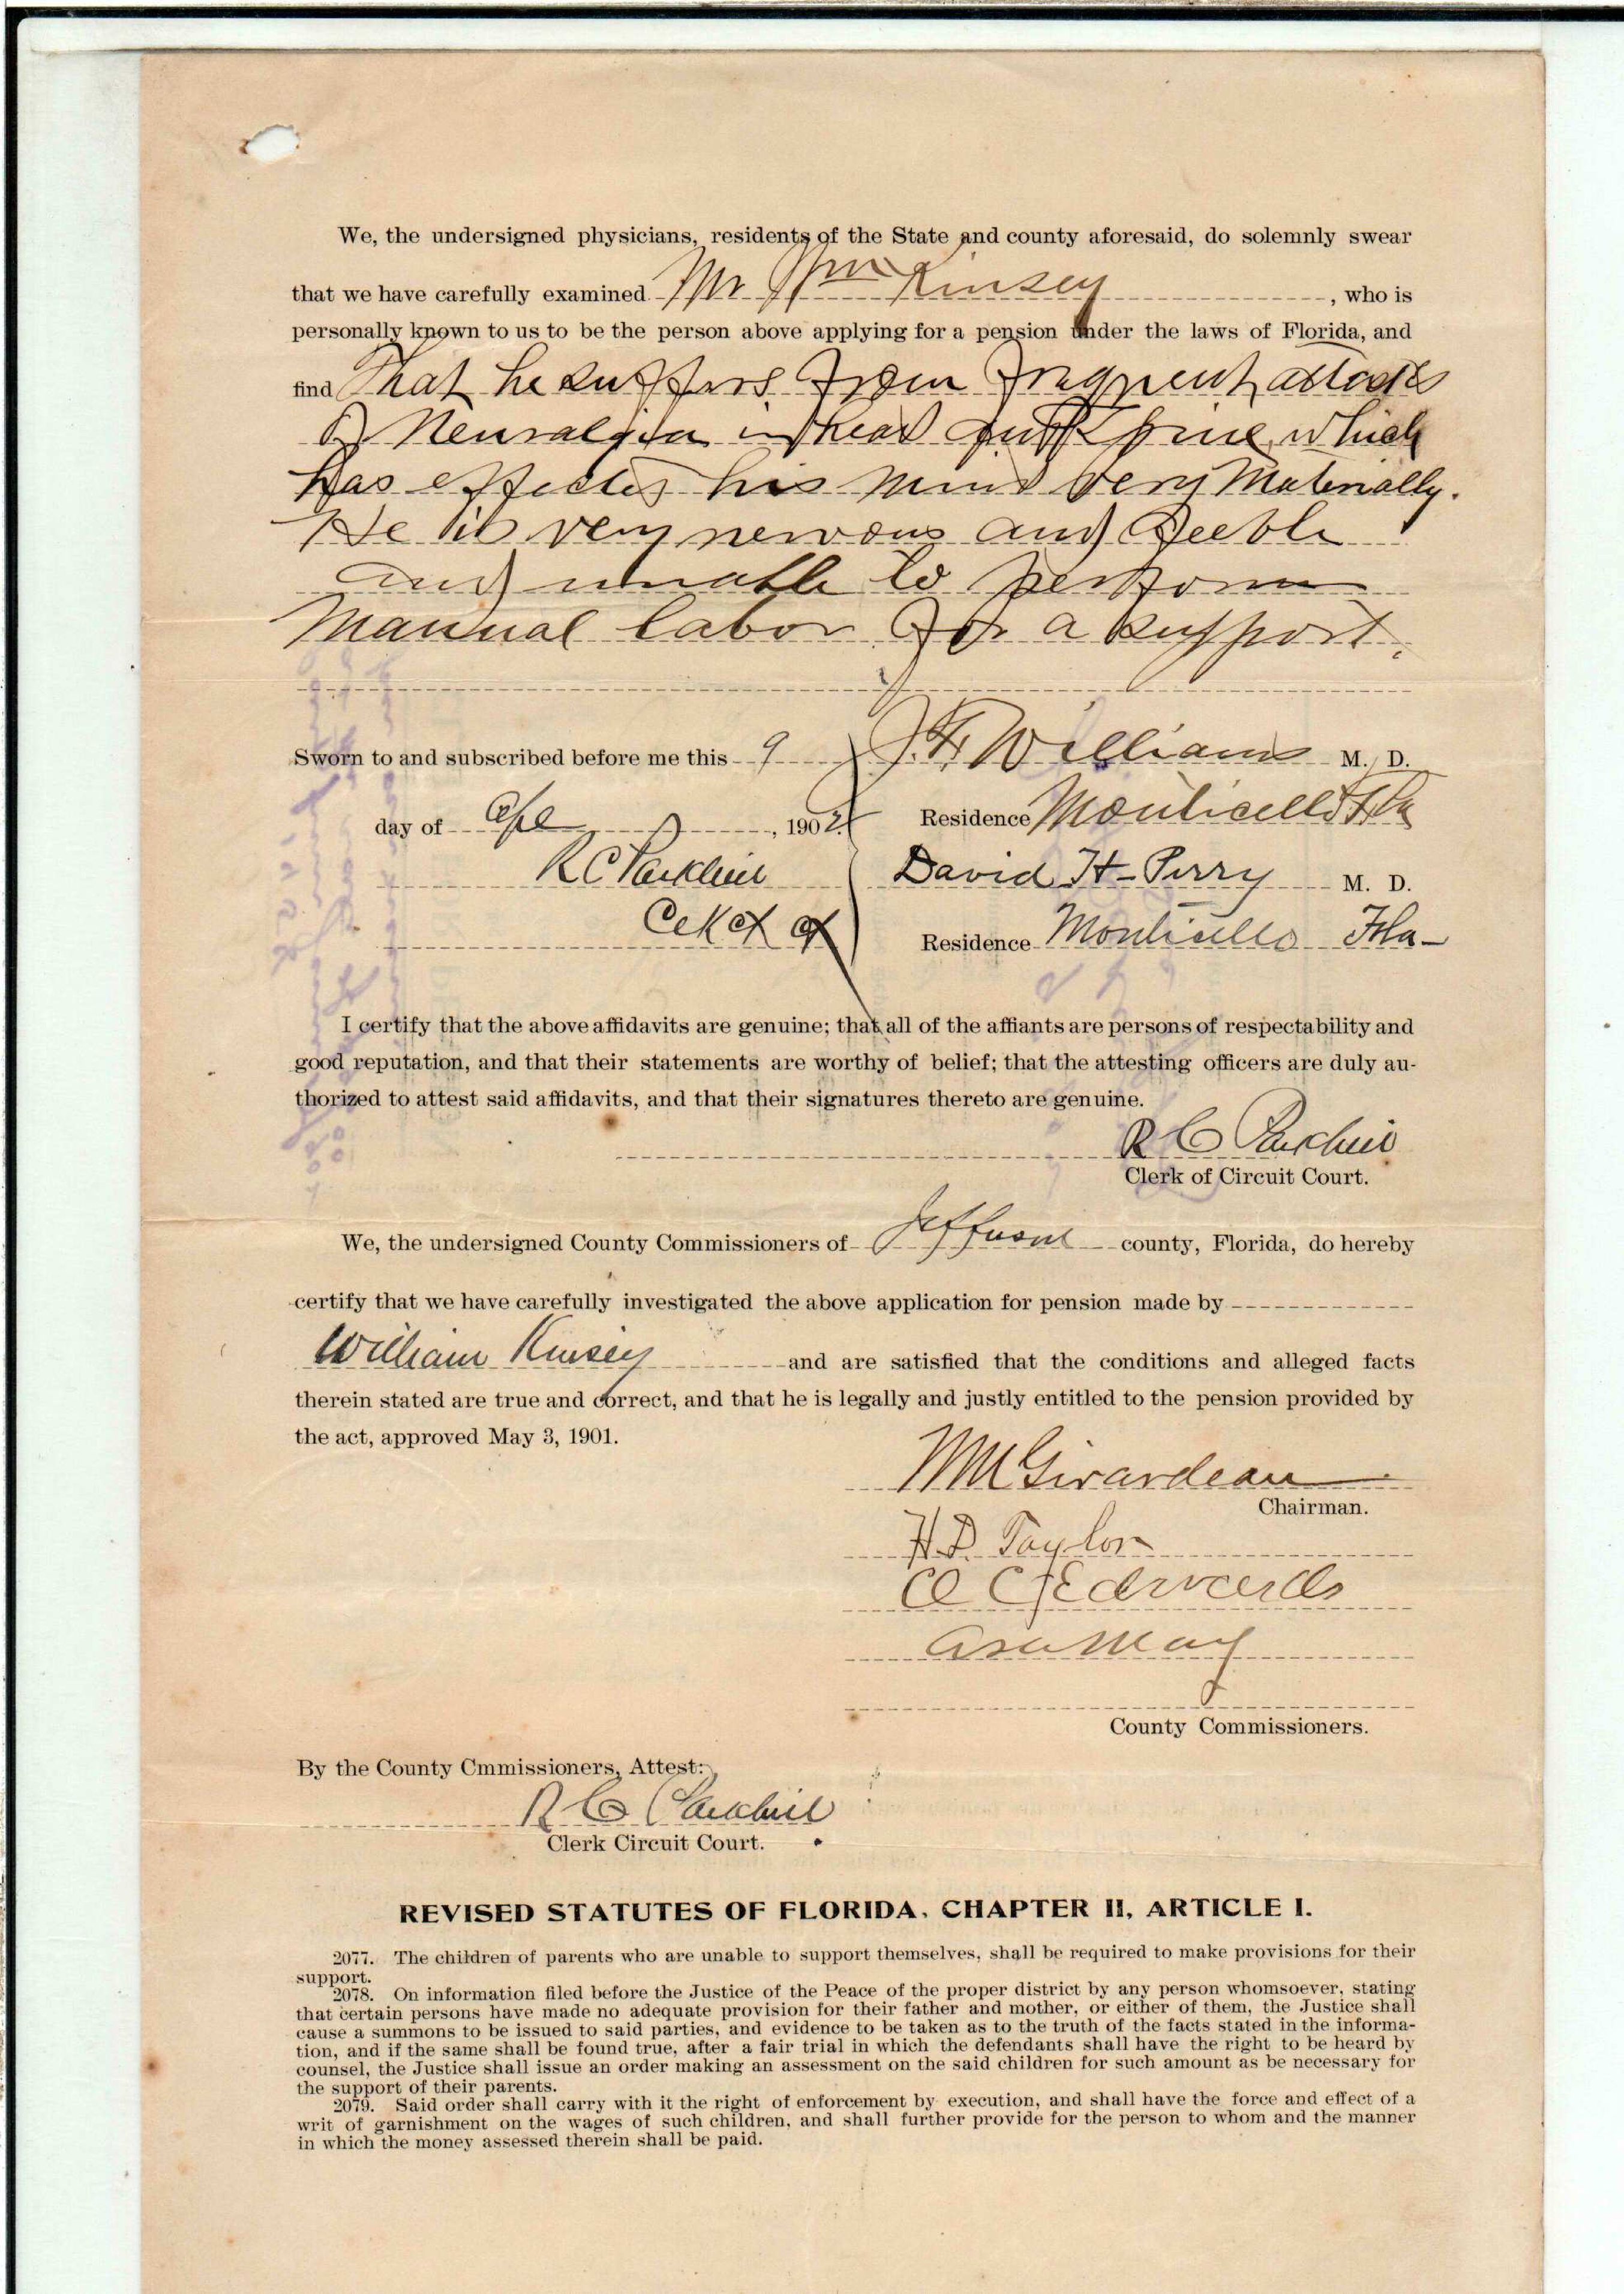 We, the undersigned physicians, residents of the State and county aforesaid, do solemnly swear
that we have carefully examined Mr Wm Kinsey, who is
personally known to us to be the person above applying for a pension under the laws of Florida, and
find That he suffers from frequent attacks
of Neuralgia in head spine which
has effected his mind very Materially.
He is very nervous and feeble
and unable to perform
Manual labor for a support.
Sworn to and subscribed before me this 9
day of Apl, 1902
R C Parkhill
Clk Ct Ct
J. F. Williams M. D.
Residence Monticello Fla
David H. Perry M. D.
Residence Monticello Fla-
I certify that the above affidavits are genuine; that all of the affiants are persons of respectability and
good reputation, and that their statements are worthy of belief; that the attesting officers are duly au-
thorized to attest said affidavits, and that their signatures thereto are genuine.
R C Parkhill
Clerk of Circuit Court.
We, the undersigned County Commissioners of Jefferson county, Florida, do hereby
certify that we have carefully investigated the above application for pension made by
William Kinsey and are satisfied that the conditions and alleged facts
therein stated are true and correct, and that he is legally and justly entitled to the pension provided by
the act, approved May 3, 1901.
W M Girardeau
Chairman.
H. D. Taylor
Edwards
Asa May
County Commissioners.
By the County Cmmissioners, Attest:
R C Parkhill
Clerk Circuit Court.
REVISED STATUTES OF FLORIDA. CHAPTER II, ARTICLE I.
2077. The children of parents who are unable to support themselves, shall be required to make provisions for their
support.
2078. On information filed before the Justice of the Peace of the proper district by any person whomsoever, stating
that certain persons have made no adequate provision for their father and mother, or either of them, the Justice shall
cause a summons to be issued to said parties, and evidence to be taken as to the truth of the facts stated in the informa-
tion, and if the same shall be found true, after a fair trial in which the defendants shall have the right to be heard by
counsel, the Justice shall issue an order making an assessment on the said children for such amount as be necessary for
the support of their parents.
2079. Said order shall carry with it the right of enforcement by execution, and shall have the force and effect of a
writ of garnishment on the wages of such children, and shall further provide for the person to whom and the manner
in which the money assessed therein shall be paid.